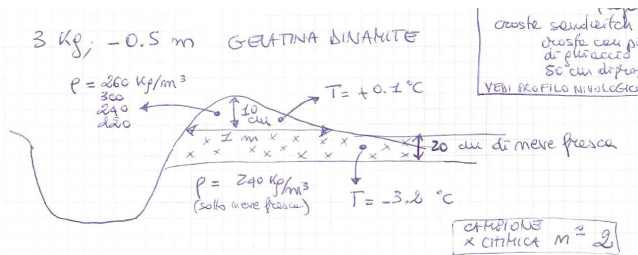 3 Kg; -0.5 m GELATINA DINAMITE
croste sandwitch
croste con p
di ghiaccio
50 cm di pro
VEDI PROFILO NIVOLOGICO
ρ = 260 Kg/m³
300
240
220
T = +0.1 °C
10 cm
1 m
20 cm di neve fresca
ρ = 240 Kg/m³
(sotto neve fresca)
T = -3.2 °C
CAMPIONE
x CHIMICA n° 2